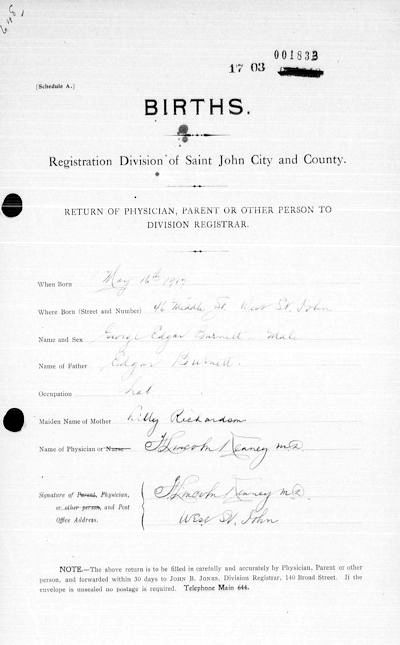 001833
17 03
[Schedule A.]
BIRTHS.
Registration Division of Saint John City and County.
RETURN OF PHYSICIAN, PARENT OR OTHER PERSON TO
DIVISION REGISTRAR.
When Born May 16th
Where Born (Street and Number) 46 Middle St. West St. John
Name and Sex George Edgar Burnell Male
Name of Father Edgar Burnell.
Occupation
Maiden Name of Mother Lilly Richardson
Name of Physician or Nurse Lincoln Kenney M.D.
Signature of Parent, Physician,
or other person, and Post
Office Address.
Lincoln Kenney M.D.
West St. John
NOTE.—The above return is to be filled in carefully and accurately by Physician, Parent or other
person, and forwarded within 30 days to JOHN B. JONES, Division Registrar, 140 Broad Street. If the
envelope is unsealed no postage is required. Telephone Main 644.